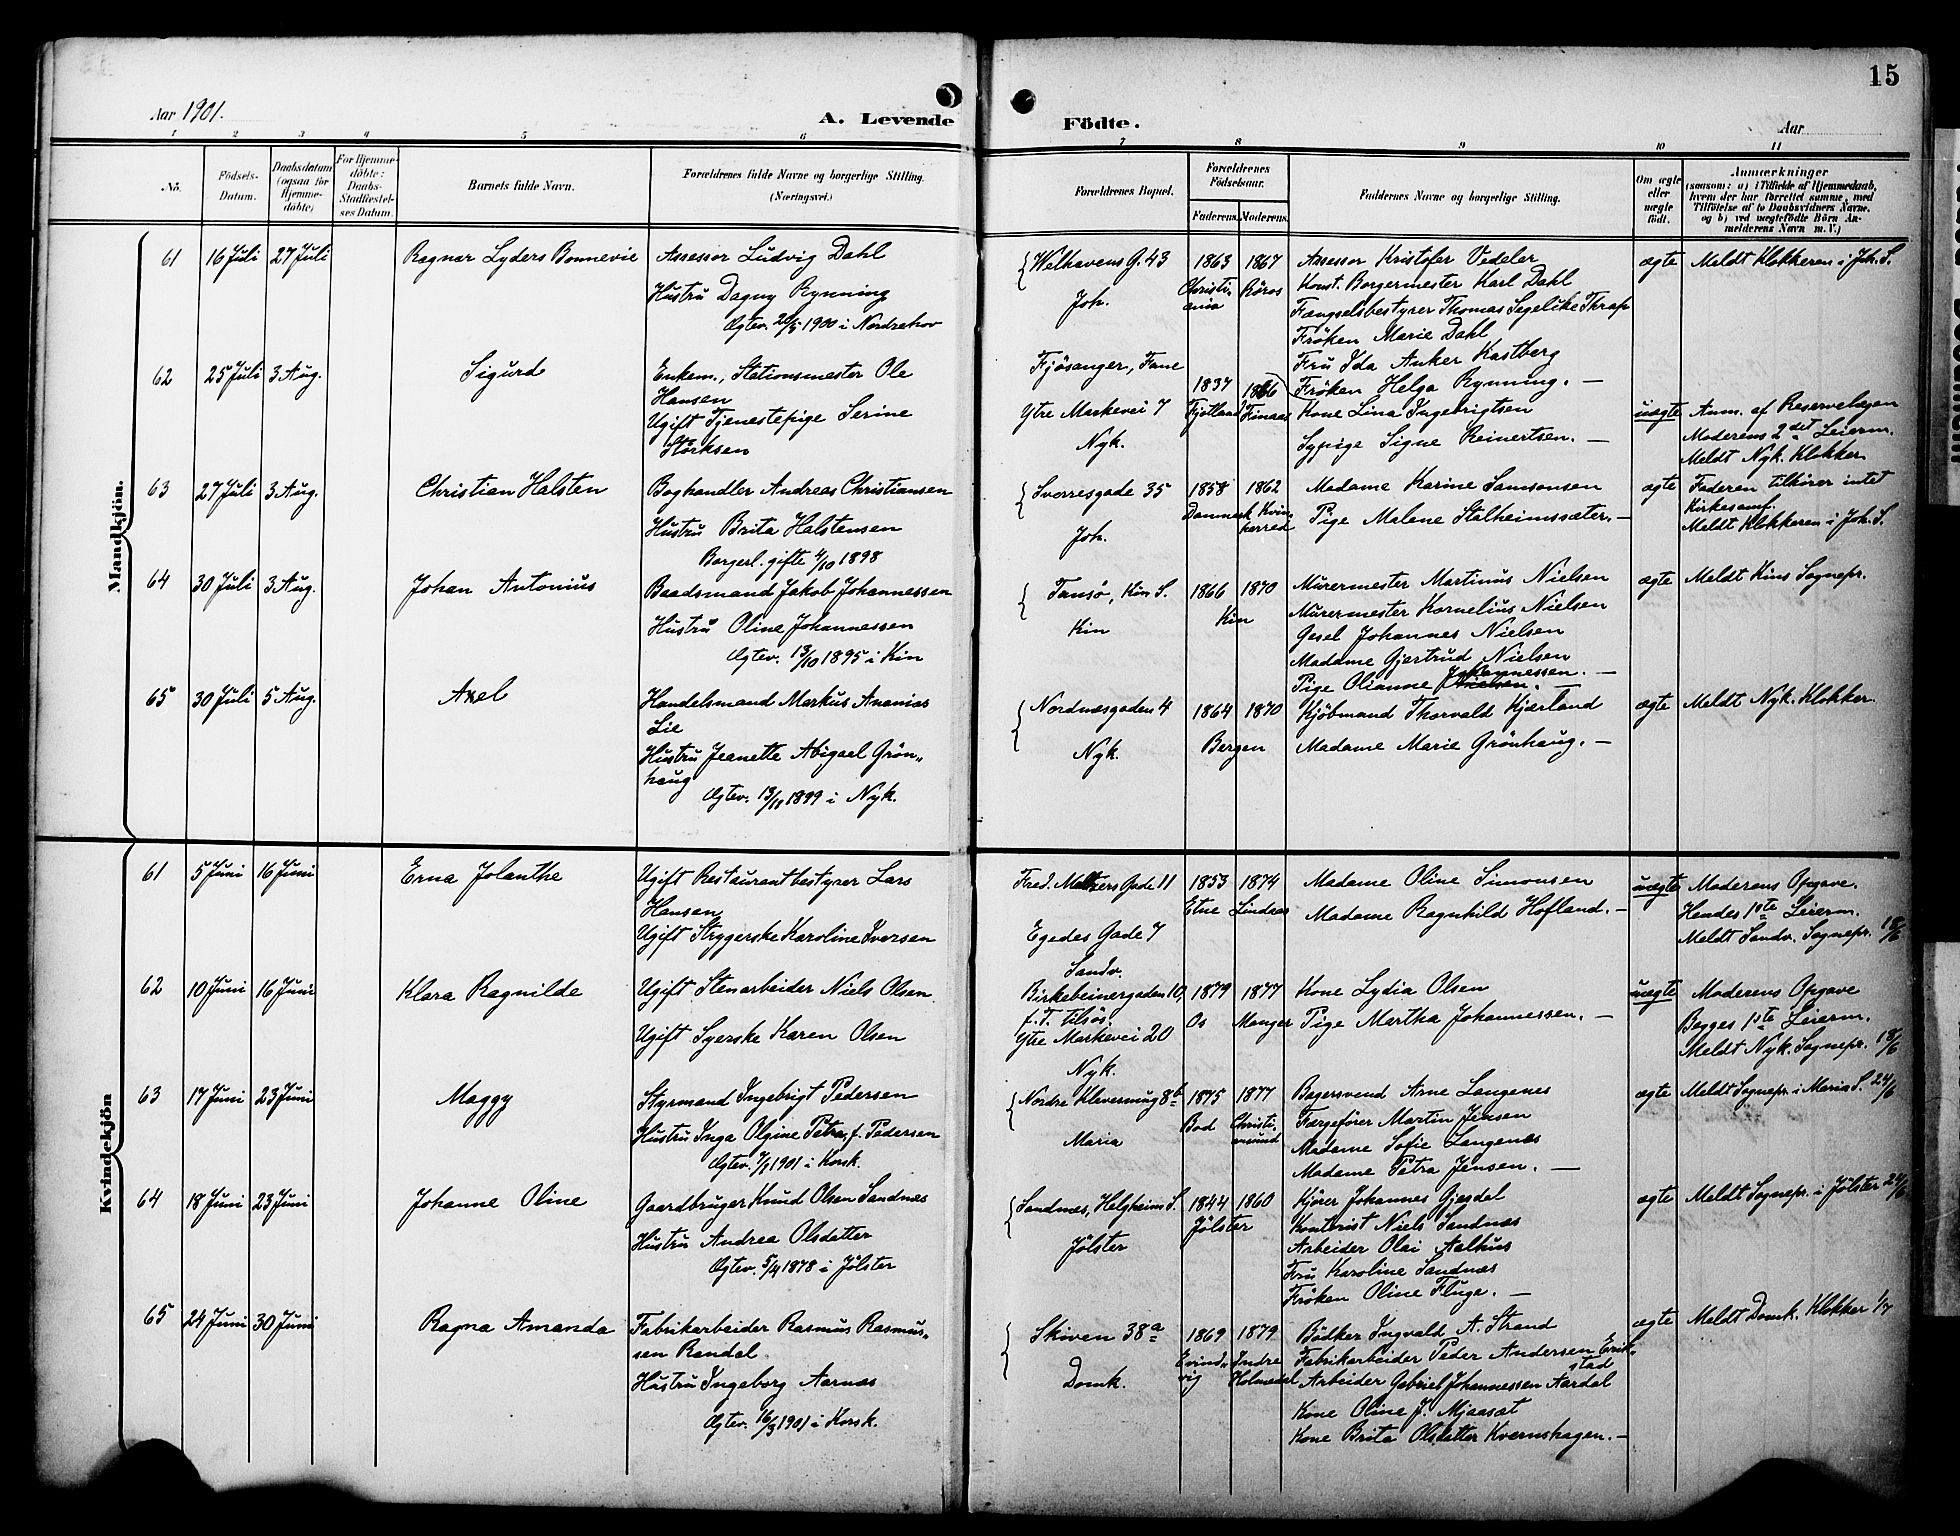 15
Aar 1901.
A. Levende
Födte.
Aar
1 2 3 4 5 6 7 8 9 10 11
No.
Födsels-
Datum.
Daabsdatum
(ogsaa for
Hjemme-
döbte)
For Hjemme-
döbte:
Daabs-
Stadfæstel-
ses Datum.
Barnets fulde Navn.
Forældrenes fulde Navne og borgerlige Stilling.
(Næringsvei.)
Forældrenes Bopæl.
Forældrenes
Födselsaar.
Faderens. Moderens.
Faddernes Navne og borgerlige Stilling.
Om ægte
eller
uægte
födt.
Anmærkninger
(saasom: a) i Tilfælde af Hjemmedaab,
hvem der har forrettet samme, med
Tilföielse af to Daabsvidners Navne,
og b) ved uægtefödte Börn An-
melderens Navn m. V.)
Mandkjön.
61 16 Juli 27 Juli Ragnar Lyders Bonnevie
Assessor Ludvig Dahl
Hustru Dagny Rynning
Ægtev. 20/5 1900 i Nordrehov
Welhavens G. 43
Joh.
1863 1867
Christi-
ania Röros
Assessor Kristofer Vedeler
Konst. Borgermester Karl Dahl
Fængselsbestyrer Thomas Segelike Thrap
Fröken Marie Dahl
Fru Ida Anker Kastberg
Fröken Helga Rynning. —
ægte
Meldt Klokkeren i Joh. S.
62 25 Juli 3 Aug. Sigurd
Enkem., Stationsmester Ole
Hansen
Ugift Tjenestepige Serine
Störksen
Fjösanger, Fane
Ytre Markevei 7
Nyk.
1837 1866
Fjotland Finaas
Kone Lina Ingebrigtsen
Sypige Signe Reinertsen. —
uægte
Anm. af Reservelægen
Moderens 2det Leierm.
Meldt Nyk. Klokker
63 27 Juli 3 Aug. Christian Halsten
Boghandler Andreas Christiansen
Hustru Brita Halstensen
Borgerl. gifte 4/10 1898
Sverresgade 35
Joh.
1858 1862
Danmark Kvin-
herred
Madame Karine Samsonsen
Pige Malene Stalheimssæter. —
ægte
Faderen tilhörer intet
Kirkesamf.
Meldt Klokkeren i Joh. S.
64 30 Juli 3 Aug. Johan Antonius
Baadsmand Jakob Johannessen
Hustru Oline Johannessen
Ægtev. 13/10 1895 i Kin
Tansø, Kin S.
Kin
1866 1870
Kin
Murermester Martinus Nielsen
Murermester Kornelius Nielsen
Gesel Johannes Nielsen
Madame Gjertrud Nielsen
Pige Olianne Nielsen. Johannessen. —
ægte
Meldt Kins Sognepr.
65 30 Juli 5 Aug. Axel
Handelsmand Markus Ananias
Lie
Hustru Jeanette Abigael Grön-
haug
Ægtev. 13/11 1899 i Nyk.
Nordnæsgaden 4
Nyk.
1864 1870
Bergen
Kjöbmand Thorvald Kjærland
Madame Marie Grönhaug. —
ægte
Meldt Nyk. Klokker.
Kvindekjön
61 5 Juni 16 Juni Erna Jolanthe
Ugift Restaurantbestyrer Lars
Hansen
Ugift Strygerske Karoline Iversen
Fred. Meltzers Gade 11
Egedes Gade 7
Sandv.
1853 1874
Etne Lindaas
Madame Oline Simonsen
Madame Ragnhild Hofland. —
uægte
Moderens Opgave.
Hendes 1ste Leierm.
Meldt Sandv. Sognepr. 18/6
62 10 Juni 16 Juni Klara Ragnilde
Ugift Stenarbeider Niels Olsen.
Ugift Syerske Karen Olsen
Birkebeinergaden 10,
f. T. tilsös
Ytre Markevei 20
Nyk.
1879 1877
Os Manger
Kone Lydia Olsen
Pige Martha Johannessen. —
uægte
Moderens Opgave
Begges 1ste Leierm.
Meldt Nyk. Sognepr. 18/6
63 17 Juni 23 Juni Maggy
Styrmand Ingebrigt Pedersen
Hustru Inga Olgine Petra, f. Pedersen
Ægtev. 7/1 1901 i Korsk.
Nordre Kleversmug 8b
Maria
1875 1877
Bod Christi-
ansund
Bagersvend Arne Langenes
Færgefører Martin Jensen
Madame Sofie Langenæs
Madame Petra Jensen. —
ægte
Meldt Sognepr. i Maria S. 24/6
64 18 Juni 23 Juni Johanne Oline
Gaardbruger Knud Olsen Sandnæs
Hustru Andrea Olsdatter
Ægtev. 5/4 1878 i Jølster
Sandnæs, Helgheim S.
Jølster
1844 1860
Jølster
Kjører Johannes Gjesdal
Kontorist Niels Sandnæs
Arbeider Olai Aalhus
Fru Karoline Sandnæs
Fröken Oline Fluge. —
ægte
Meldt Sognepr. i Jølster 24/6
65 24 Juni 30 Juni Ragna Amanda
Fabrikarbeider Rasmus Rasmus-
sen Randal.
Hustru Ingeborg Aarnæs
Ægtev. 16/3 1901 i Korsk.
Skiven 38a
Domk.
1869 1879
Evind-
vig Indre
Holmedal
Bödker Ingvald A. Strand
Fabrikarbeider Peder Andersen Erik-
stad
Arbeider Gabriel Johannessen Aardal
Kone Oline J. Mjaasæt
Kone Brita Olsdatter Kvernshagen. —
ægte
Meldt Domk. Klokker 1/7